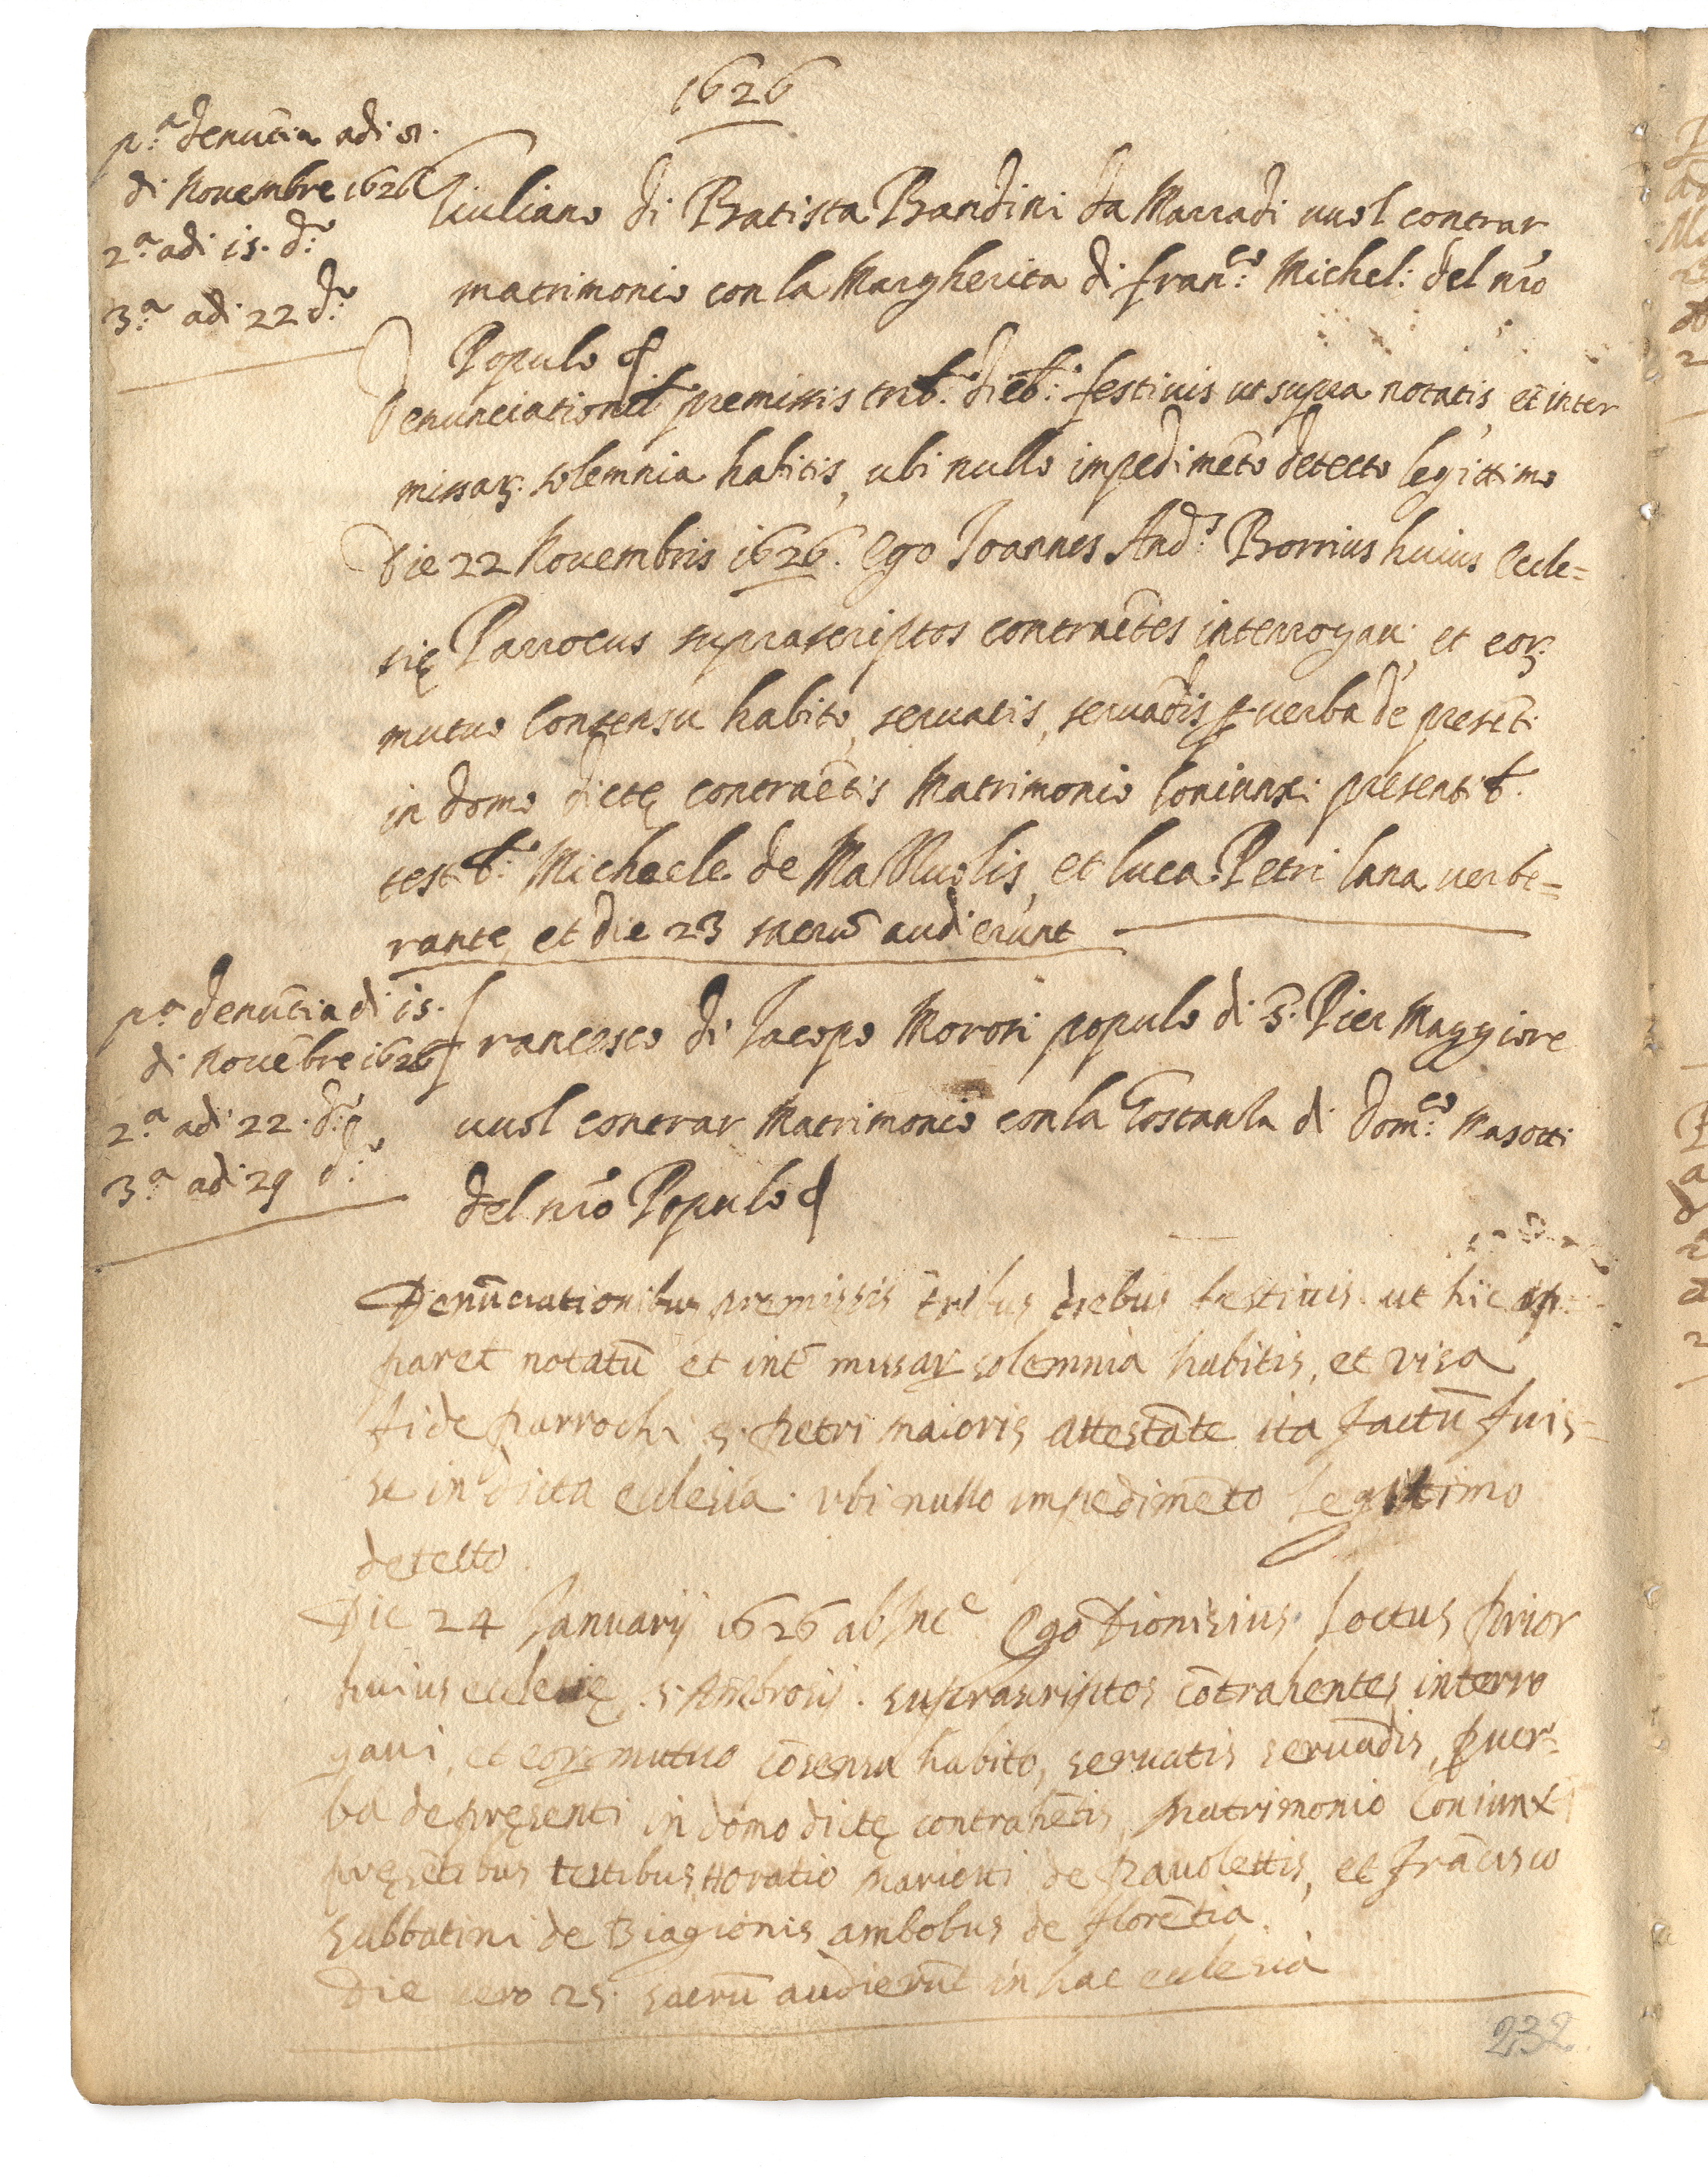 1626
p.a denũtia adi 8.
di Nouembre 1626
2.a adi 15. d.o
3.a adi 22 d.o
Giuliano di Batista Bandini da Marradi uuol contrar
matrimonio con la Margherita di fran.co Michel: del nr̃o
Populo
Denunciationib. premissis trib.s dieb.s festiuis ut supra notatis, et inter
missaꝝ. solemnia habitis, ubi nullo impedimẽto detecto legittimo
Die 22 Nouembris 1626. Ego Joannes And.s Borrius huius Eccle=
się Parrocus suprascriptos contraẽtes interrogaui, et eoꝝ.
mutuo Consensu habito, seruatis, seruãdis ꝑ uerba de presẽti
in domo dictę contraẽtis Matrimonio Coniunxi presentib.
testib.s Michaele de Mazzuolis, et luca Petri lana uerbe=
rante, et die 23 sacrũ audierunt
p.a denũtia di 15.
di Nouẽbre 1626
2.a adi 22. d.o
3.a adi 29 d.o
Francesco di Jacopo Morosi populo di S. Pier Maggiore
uuol contrar Matrimonio con la Gostanza di Dom.co Masotti
del nr̃o Populo
Denũciationibus premissis tribus diebus festiuis ut hic ap
paret notatũ et intẽ missaꝝ solemnia habitis, et visa
fide parrochi S. Petri maioris attestãte ita factũ fuis=
se in dicta ecclesia. vbi nullo impedimẽto legittimo
detecto.
Die 24 Januarij 1626 ab Inc.e Ego Dionisius Loctus Prior
huius ecclesię S. Ambrosij. suprascriptos cõtrahentes interro
gaui, et eoꝝ mutuo cõsensu habito, seruatis seruãdis, ꝑ uer=
ba de pręsenti in domo dictę contrahẽtis, Matrimonio Coniunxi
pręsẽtibus testibus Horatio Mariotti de Pauolettis, et Frãcisco
Sabbatini de Biagionis ambobus de florẽtia.
Die uero 25. sacrũ audierũt in hac ecclesia
232